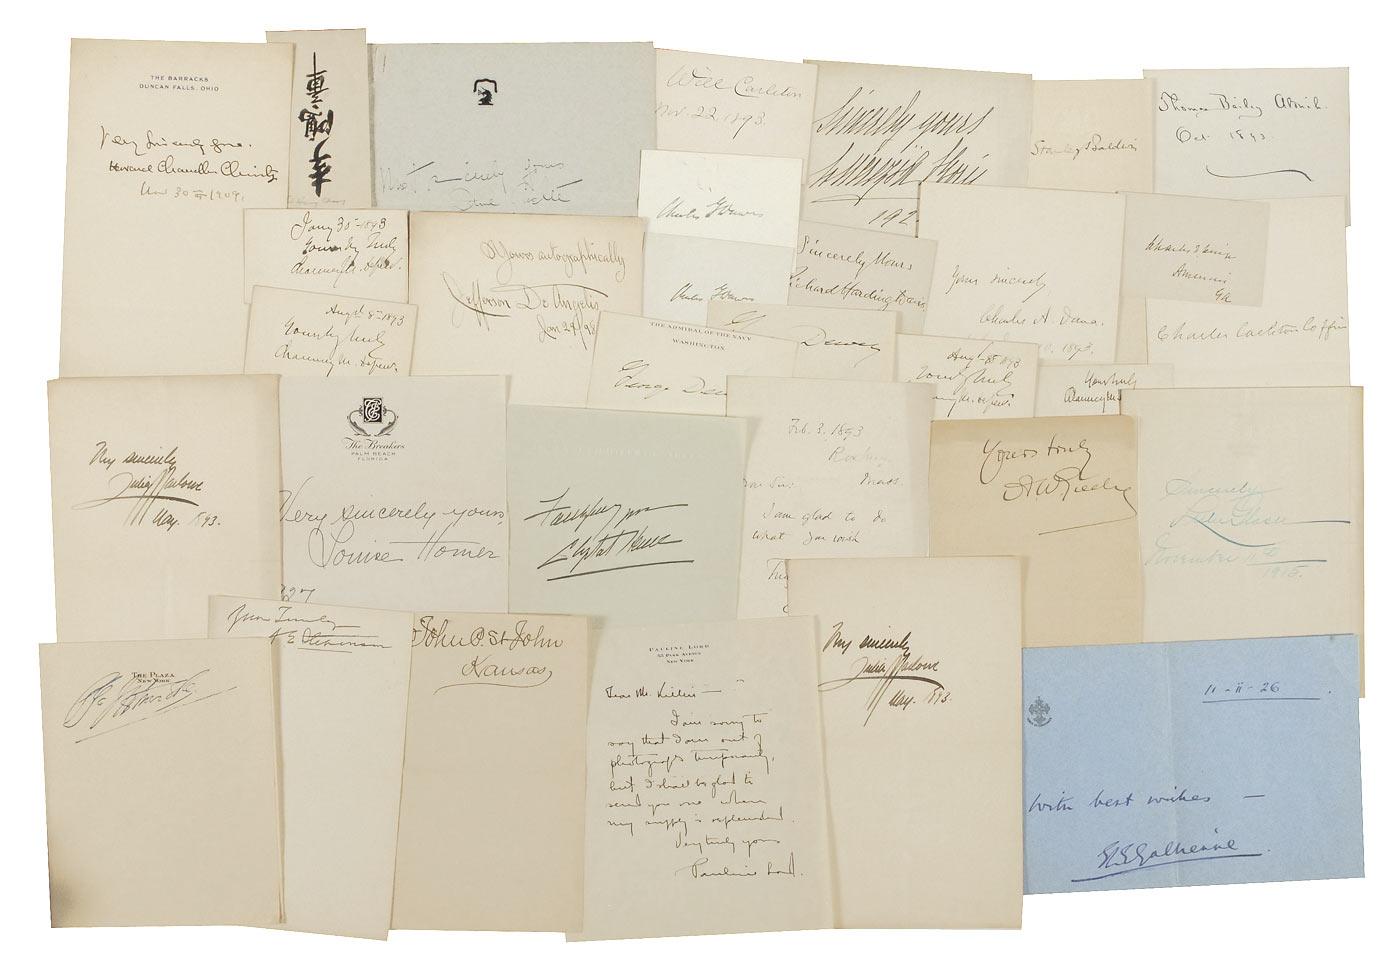 THE BARRACKS
DUNCAN FALLS, OHIO
Very sincerely yours.
Howard Chandler Christy
Nov 30 - 1909.
sincerely yours
Will Carleton
Nov. 22, 1893.
Sincerely yours
192
Stanley Baldwin
Thomas Bailey Aldrich.
Oct. 1893.
Jany 30 - 1893
Yours truly
Chauncey M. Depew.
Yours autographically
Jefferson De Angelis
Jan 24/98
Charles G Dawes
Charles G Dawes
Sincerely Yours
Richard Harding Davis
Yours sincerely
Charles A. Dana.
1893.
Americus
Ga
Charles Carleton Coffin
Augst 8th 1893
Yours truly
Chauncey M. Depew
THE ADMIRAL OF THE NAVY
WASHINGTON.
George Dew
G
Dewey
Augst 8th 1893
Yours truly
M. Depew.
Yours truly
Chauncey M
My sincerely
Julia Marlowe
May. 1893.
The Breakers
PALM BEACH
FLORIDA
Very sincerely yours,
Louise Homer
27
Feb. 3. 1893
Roxbury
Mass.
Sir
I am glad to do
what you wish
Yours truly
A W Greely
Sincerely
November 11th
1915.
Yours Truly
John P. St John
Kansas
THE PLAZA
NEW YORK
PAULINE LORD
55 PARK AVENUE
NEW YORK
Dear Mr.
I am sorry to
say that I am out of
photographs temporarily,
but I shall be glad to
send you one when
my supply is replenished.
Very truly yours
Pauline Lord.
My sincerely
Julia Marlowe
May. 1893.
11-11-26
With best wishes —